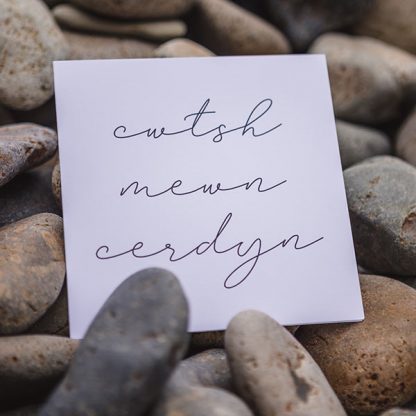 cwtsh
mewn
cerdyn